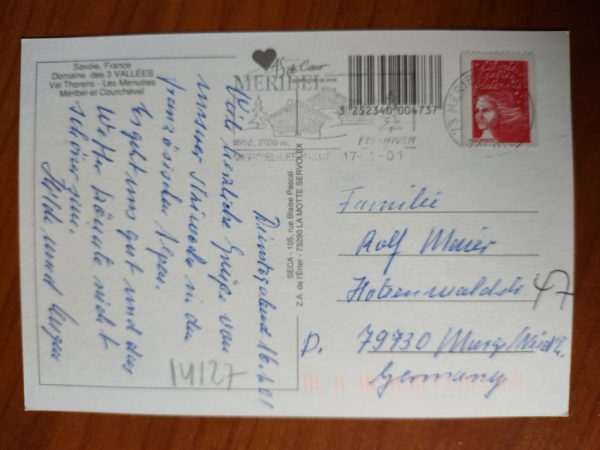 Savoie, France
Domaine des 3 VALLÉES
Val Thorens - Les Menuires
Méribel et Courchevel
Dienstagabend 16.1.01
Viele herzliche Grüße von
unserer Skiwoche in den
französischen Alpen.
Es geht uns gut und das
Wetter könnte nicht
schöner sein.
und
14127
SECA - 105, rue Blaise Pascal
Z.A. de l'Erier - 73290 LA MOTTE SERVOLEX
de Cœur
MERIBEL
1600, 2700 m.
ETE-HIVER
17-1-01
3 252340 004737
13 MERIBEL
liberté
égalité
fraternité
Familie
Rolf Maier
Hotzenwaldstr. 47
D. 79730 Murg/Niederh.
Germany